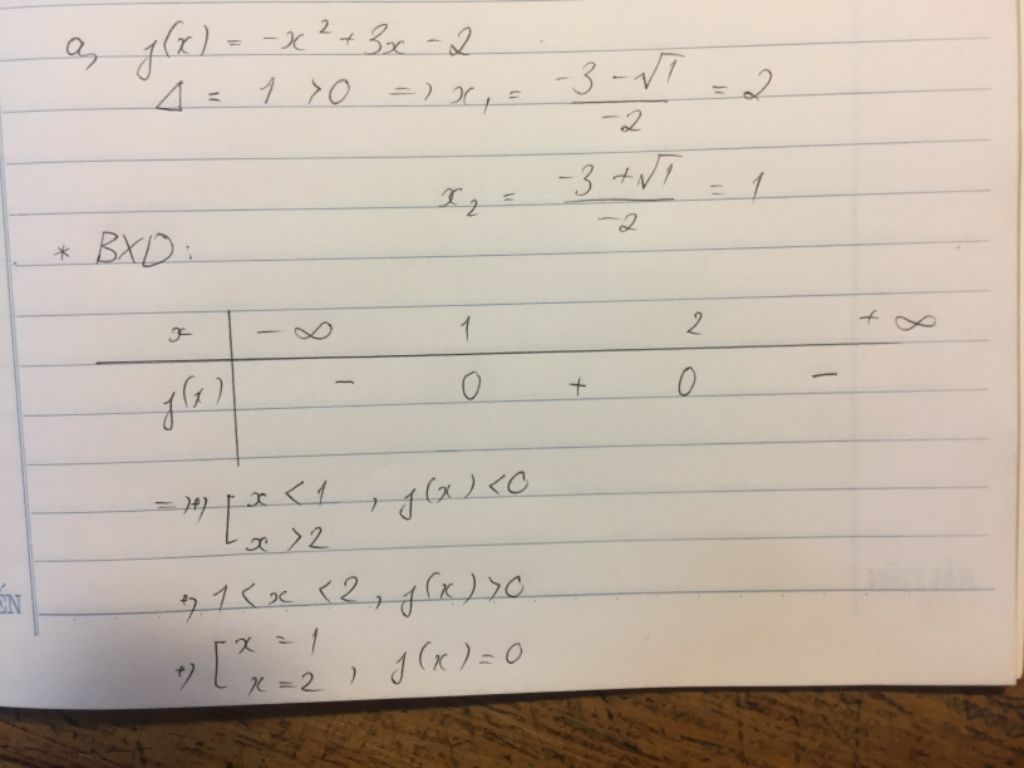 a, f(x) = -x² + 3x - 2
Δ = 1 > 0 => x₁ = (-3 - √1)/(-2) = 2
x₂ = (-3 + √1)/(-2) = 1
* BXD:
x | -∞ 1 2 +∞
f(x) | - 0 + 0 -
=> +) [ x < 1 , f(x) < 0
x > 2
+) 1 < x < 2 , f(x) > 0
+) [ x = 1
x = 2 , f(x) = 0
ẾN